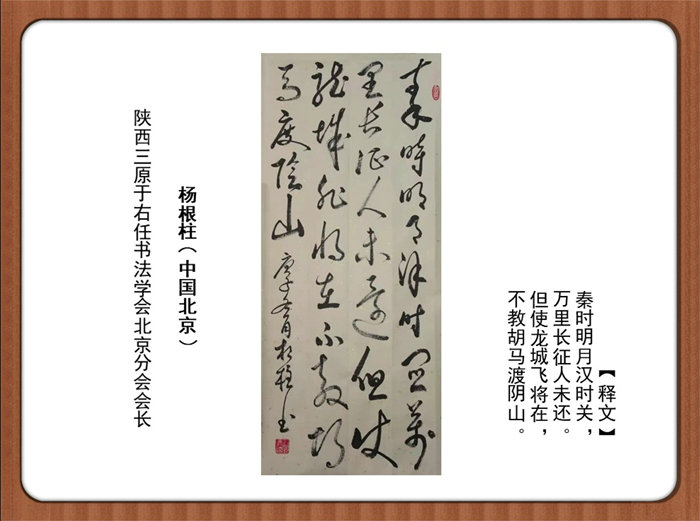 【释文】
秦时明月汉时关，
万里长征人未还。
但使龙城飞将在，
不教胡马渡阴山。
秦時明月漢时関萬
里长征人未還但使
龙城飛将在不教胡
马度陰山 庚子冬月根柱书
杨根柱（中国北京）
陕西三原于右任书法学会北京分会会长